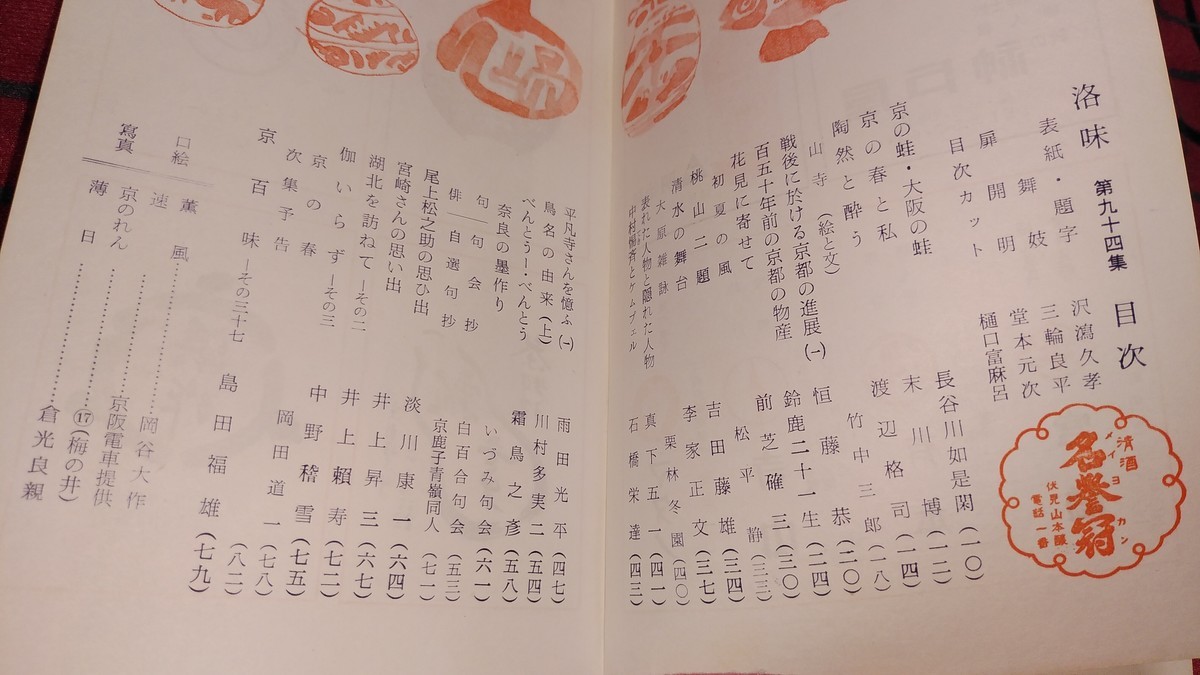 洛味 第九十四集 目次
表紙・題字 沢瀉久孝
舞妓 三輪良平
扉 開明 堂本元次
目次カット 樋口富麻呂
清酒
メイヨカン
名誉冠
伏見山本醸
電話一番
京の蛙・大阪の蛙 長谷川如是閑 (一〇)
京の春と私 末川博 (一二)
陶然と酔う 渡辺格司 (一四)
山寺 (絵と文) 竹中三郎 (一八)
戦後に於ける京都の進展 (一) 恒藤恭 (二〇)
百五十年前の京都の物産 鈴鹿二十一生 (二四)
花見に寄せて 前芝確三 (三〇)
初夏の風 松平静 (三三)
桃山二題 吉田藤雄 (三四)
清水の舞台 李家正文 (三七)
大原雑詠 栗林冬園 (四〇)
表れた人物と隠れた人物 真下五一 (四一)
石橋栄達 (四三)
平凡寺さんを憶ふ (一) 雨田光平 (四七)
鳥名の由来 (上) 川村多実二 (五四)
べんとうー・べんとう 霜鳥之彦 (五八)
奈良の墨作り
句―句会抄 いづみ句会 (六一)
白百合句会 (五三)
俳―自選句抄 京鹿子青嶺同人 (七一)
尾上松之助の思ひ出 淡川康一 (六四)
宮崎さんの思い出 井上昇三 (六七)
湖北を訪ねて―その二 井上頼寿 (七二)
伽いらず―その三 中野稽雪 (七五)
京の春 岡田道一 (七八)
次集予告 (八二)
京百味―その三十七 島田福雄 (七九)
口絵 薫風 岡谷大作
速
寫真 京のれん 京阪電車提供
⑰(梅の井)
薄日 倉光良親